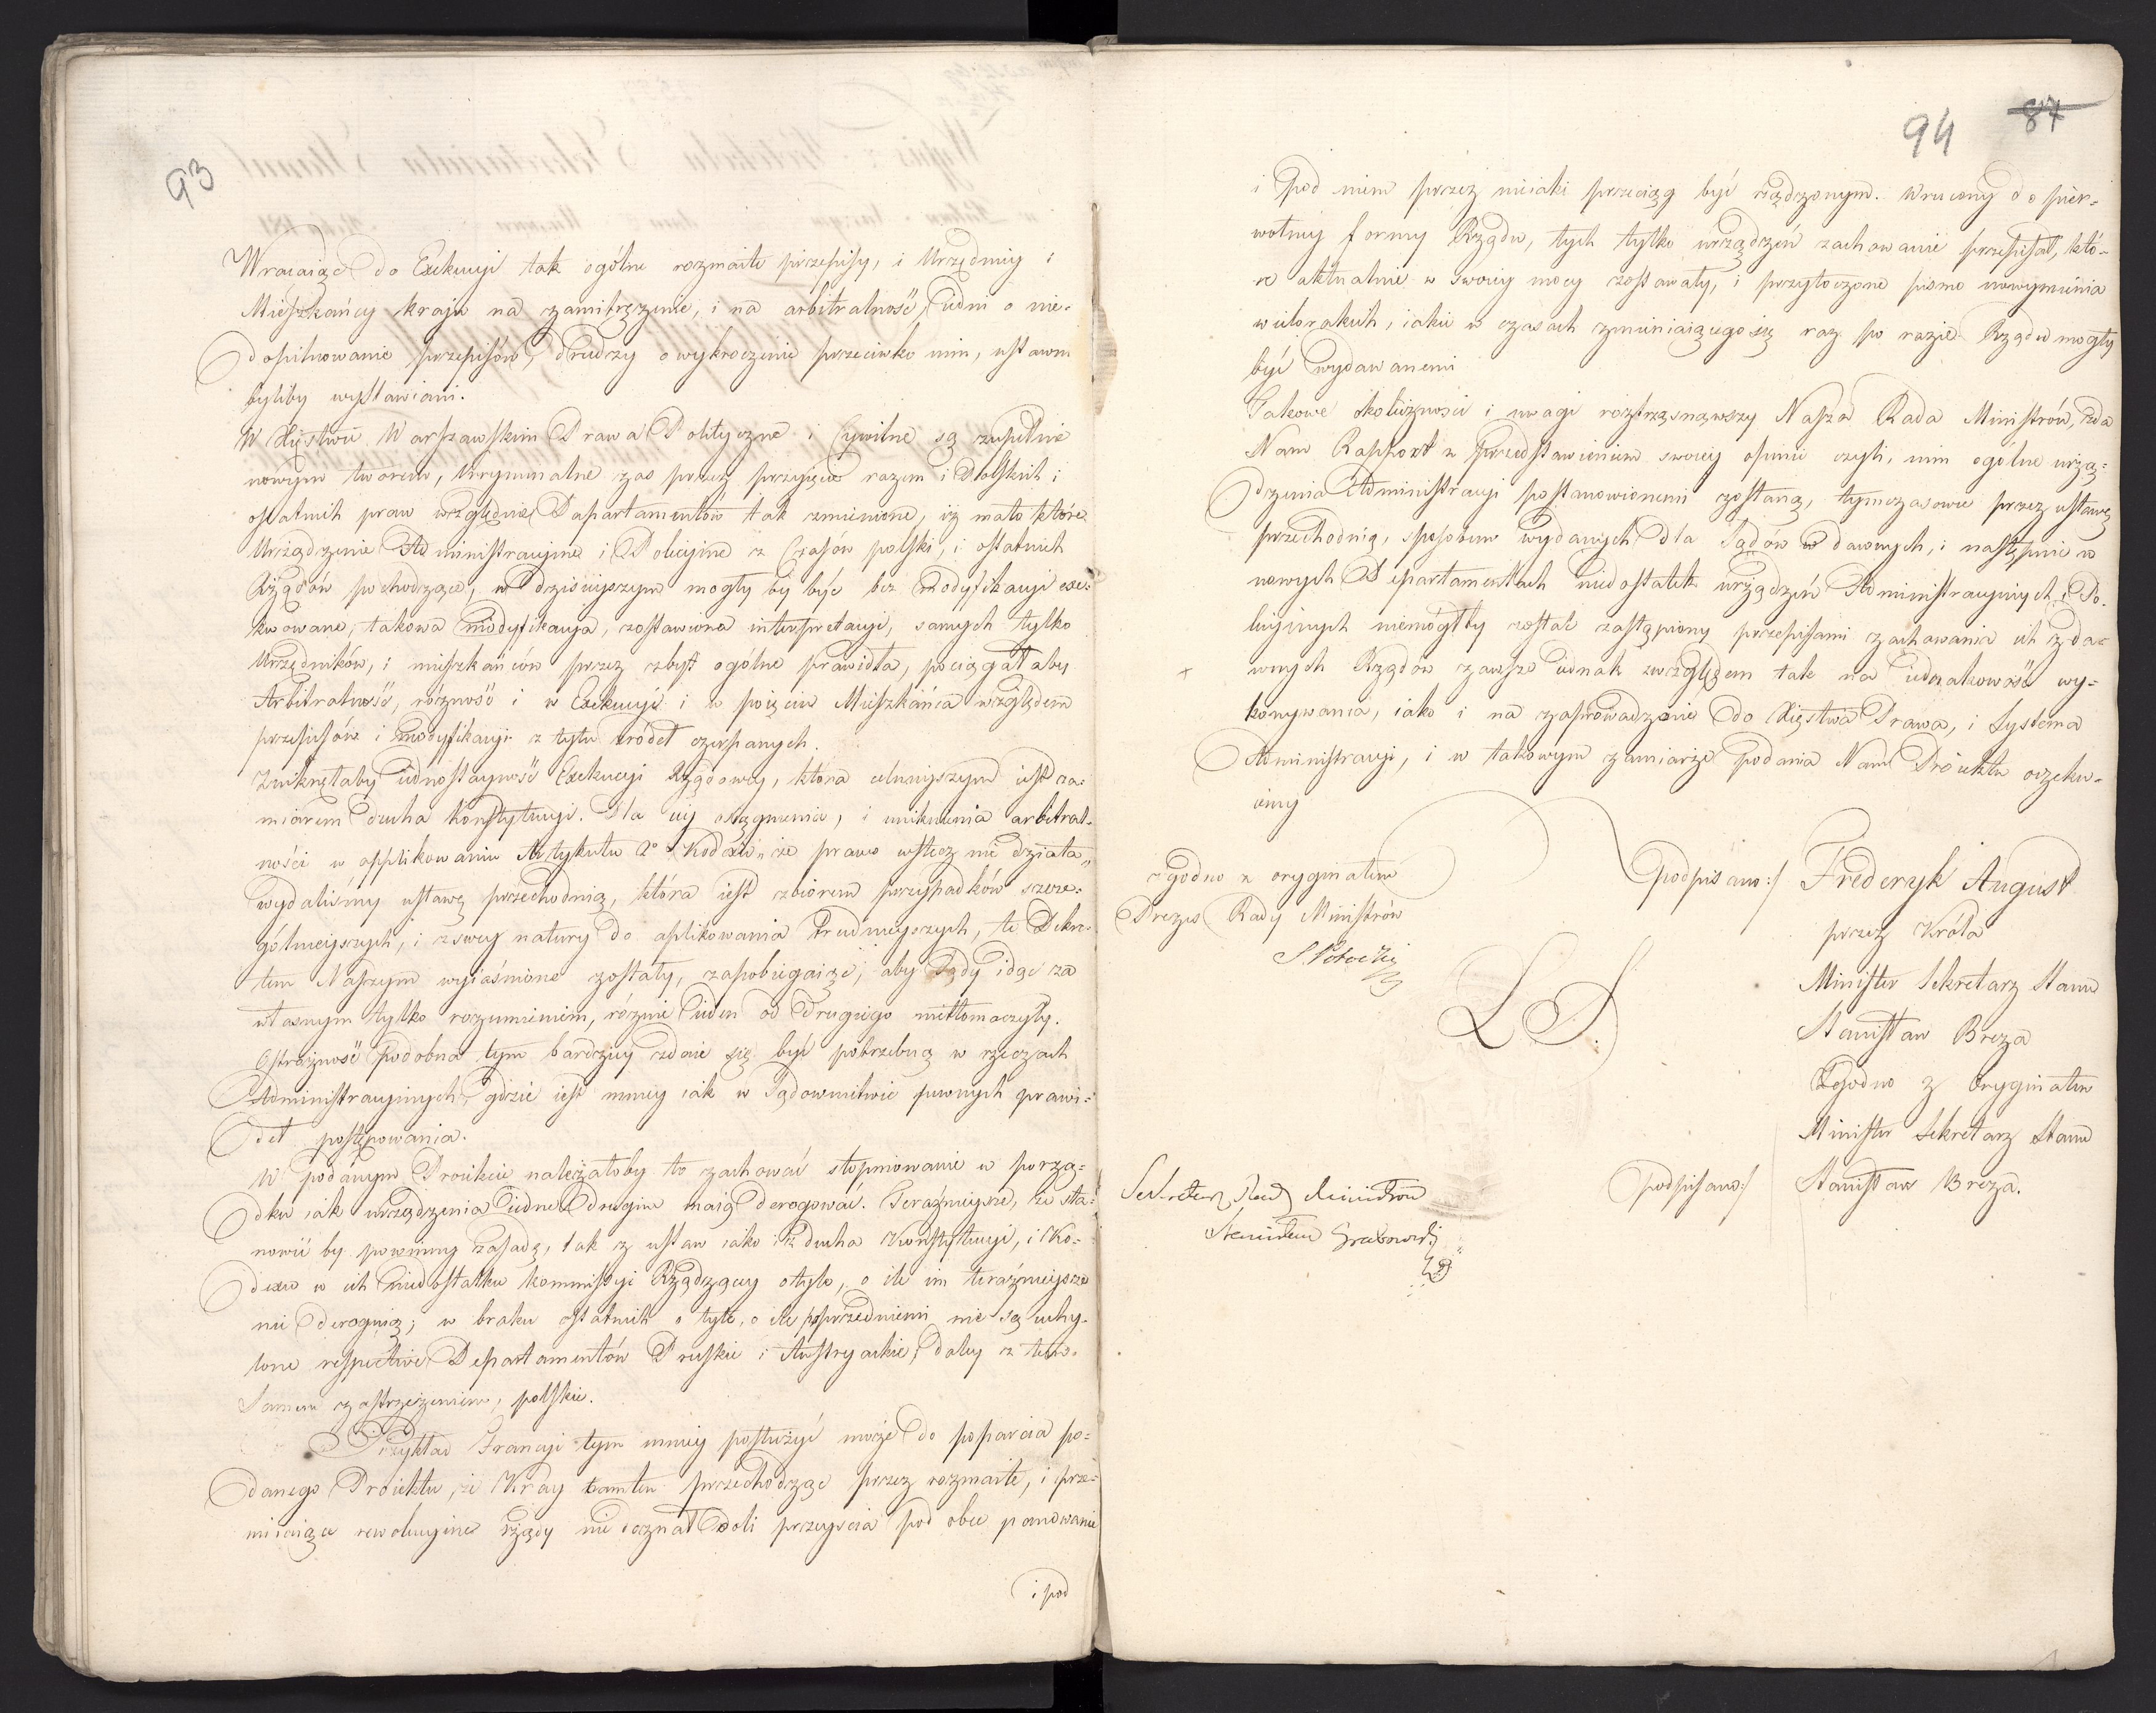 93
Wracaiąc do Exekucyi tak ogólne rozmaite przepisy, i Urzędnicy i
Mieszkańcy kraju na zamitrężenie, i na arbitralność, iedni o nie-
dopilnowanie przepisów, drudzy o wykroczenie przeciwko nim, ustawni
byliby wystawiani.
W Xięstwie Warszawskim Prawa Polityczne i Cywilne są zupełnie
nowym tworem, kryminalne zaś przez przyięcie razem i Polskich i
ostatnich praw względnie Departamentów tak zmienione, iż mało które
Urządzenie Administracyine i Policyine z Czasów polski, i ostatnich
Rządów pochodzące, w dzisieyszym mogły by być bez modyfikacyi exe-
kwowane, takowa modyfikacya, zostawiona interpretacyi, samych tylko
Urzędników, i mieszkańców przez zbyt ogólne prawidła, pociągałaby
Arbitralność, różność i w Exekucyi i w poięciu Mieszkańca względem
przepisów i modyfikacyi z tylu źródeł czerpanych.
Zniknęłaby iednostayność Exekucyi Rządowey, która celnieyszym iest za-
miarem ducha Konstytucyi. Dla iey osiągnienia, i uniknienia arbitral-
ności w applikowaniu Artykułu 2º Kodexu „że prawo wstecz nie działa„
wydaliśmy ustawę przechodnią, która iest zbiorem przypadków szcze-
gólnieyszych, i z swey natury do aplikowania trudnieyszych, te Dekre-
tem Naszym wyiaśnione zostały, zapobiegaiąc, aby Sądy idąc za
własnym tylko rozumieniem, różnie ieden od drugiego nietłomaczyły.
Ostrożność podobna tym bardziey zdaie się być potrzebną w rzeczach
Administracyinych, gdzie iest mniey iak w Sądownictwie pewnych prawi-
deł postępowania.
W podanym Proiekcie należałoby to zachować stopniowanie w porzą-
dku iak urządzenia iedne drugim maią derogować. Teraźnieysze, że sta-
nowić by powinny zasadę, tak z ustaw iako i z ducha Konstytucyi, i Ko-
dexu w ich niedostatku kommissyi Rządzącey otyle, o ile im teraźnieysze
nie deroguią; w braku ostatnich o tyle, o ile poprzedniemi nie są uchy-
lone respective Departamentów Pruskie i Austryackie, daley z tem-
Samem zastrzeżeniem, polskie.
Przykład Francyi tym mniey posłużyć może do poparcia po-
danego Proiektu, że Kray tamten przechodząc przez rozmaite, i prze-
miiaiące rewolucyine rządy nie doznał doli przeyścia pod obce panowanie
i pod
94 87
i pod niem przez nieiaki przeciąg być rządzonym. Wrucony do pier-
wotney formy Rządu, tych tylko urządzeń zachowanie przepisał, któ-
re aktualnie w swoiey mocy zostawały, i przytoczone pismo nowymienia
wielorakich, iakie w czasach zmieniaiącego się raz po razie Rządu mogły
być wydawanemi
Takowe okoliczności i uwagi roztrząsnąwszy Nasza Rada Ministrów, zda
Nam Rapport z przedstawieniem swoiey opinii czyli, nim ogólne urzą-
dzenia Administracyi postanowionemi zostaną, tymczasowie przez ustawę
przechodnią, sposobem wydanych dla Sądów w dawnych, i następnie w
nowych Departamentach niedostatek urządzeń Administracyinych i Po-
licyinych niemógłby zostać zastąpiony przepisami zachowania ich z da-
+ wnych Rządów zawsze iednak zwzględem tak na iednakowość wy-
konywania, iako i na zaprowadzenie do Xięstwa Prawa, i Systema
Administracyi, i w takowym zamiarze podania Nam Proiektu oczeku-
iemy
zgodno z oryginałem
Prezes Rady Ministrów
S. Potocki
podpisano:/ Fryderyk August
przez Króla
Minister Sekretarz Stanu
Stanisław Breza
L S.
Zgodno z Oryginałem
Minister Sekretarz Stanu
podpisano:/ Stanisław Breza.
Sekretarz Rady Ministrów
Stanisław Grabowski